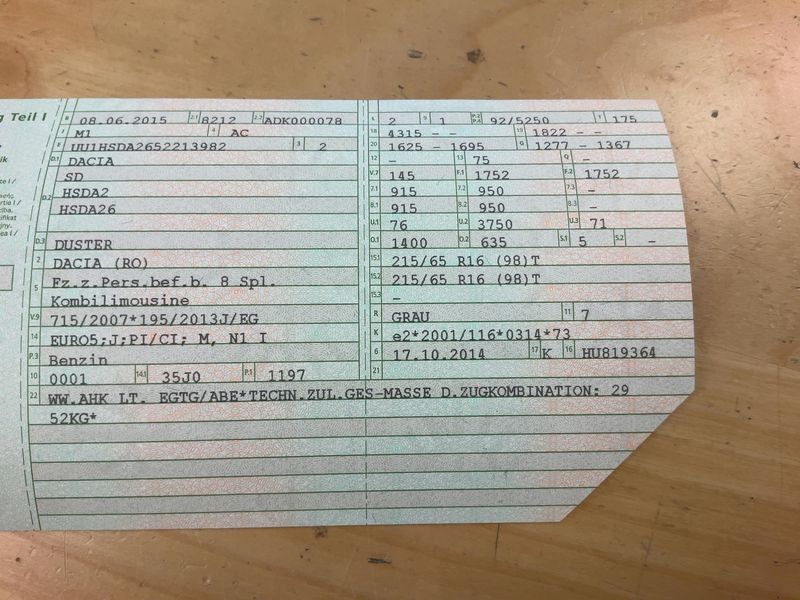 g Teil I
B 08.06.2015 2.1 8212 2.2 ADK000078
J M1 4 AC
E UU1HSDA2652213982 3 2
D.1 DACIA
SD
D.2 HSDA2
HSDA26
D.3 DUSTER
2 DACIA (RO)
5 Fz.z.Pers.bef.b. 8 Spl.
Kombilimousine
V.9 715/2007*195/2013J/EG
14 EURO5;J;PI/CI; M, N1 I
P.3 Benzin
10 0001 14.1 35J0 P.1 1197
L 2 9 1 P.2 P.4 92/5250 T 175
18 4315 - - 19 1822 - -
20 1625 - 1695 G 1277 - 1367
12 - 13 75 Q -
V.7 145 F.1 1752 F.2 1752
7.1 915 7.2 950 7.3 -
8.1 915 8.2 950 8.3 -
U.1 76 U.2 3750 U.3 71
O.1 1400 O.2 635 S.1 5 S.2 -
15.1 215/65 R16 (98)T
15.2 215/65 R16 (98)T
15.3 -
R GRAU 11 7
K e2*2001/116*0314*73
6 17.10.2014 17 K 16 HU819364
21
22 WW.AHK LT. EGTG/ABE*TECHN.ZUL.GES-MASSE D.ZUGKOMBINATION: 29
52KG*